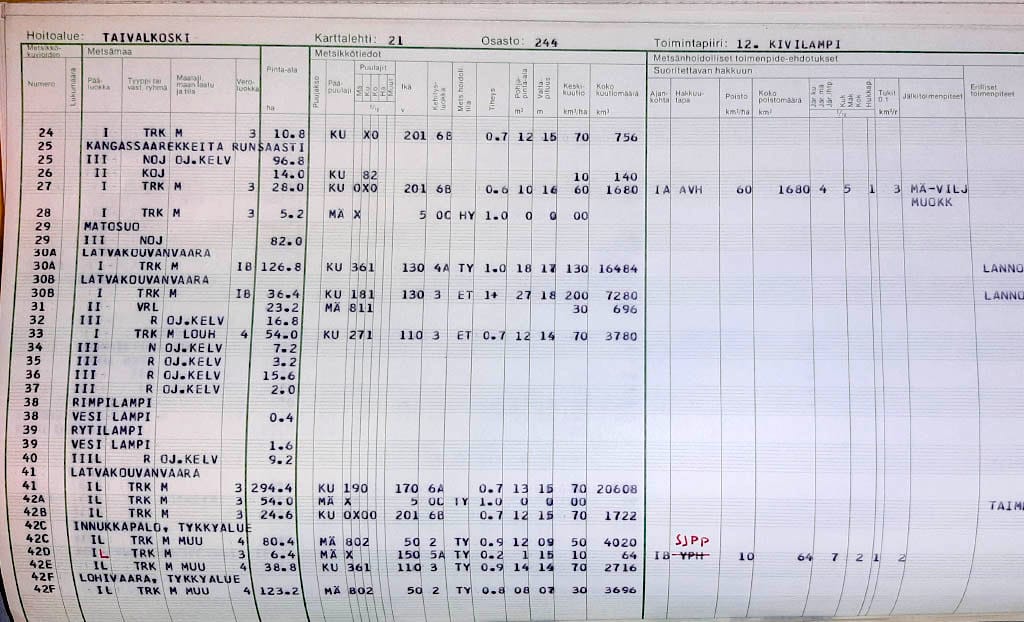 Hoitoalue: TAIVALKOSKI Karttalehti: 21 Osasto: 244 Toimintapiiri: 12. KIVILAMPI
Metsikkö-kuvioiden Metsämaa Metsikkötiedot Metsänhoidolliset toimenpide-ehdotukset
Suoritettavan hakkuun
Numero Lukumäärä Pää-luokka Tyyppi tai vast. ryhmä Maalaji, maan laatu ja tila Vero-luokka Pinta-ala ha Puujakso Pää-puulaji Puulajit Mä Ku Ko Ha Muu Ikä v Kehitys-luokka Mets.hoidoll. tila Tiheys Pohja-pinta-ala m² Valta-pituus m Keski-kuutio km³/ha Koko kuutiomäärä km³ Ajan-kohta Hakkuu-tapa Poisto km³/ha Koko poistomäärä km³ Tukit 0.1 km³/r Jälkitoimenpiteet Erilliset toimenpiteet
24 I TRK M 3 10.8 KU X0 201 6B 0.7 12 15 70 756
25 KANGASSAAREKKEITA RUNSAASTI
25 III NOJ OJ.KELV 96.8
26 II KOJ 14.0 KU 82 10 140
27 I TRK M 3 28.0 KU 0X0 201 6B 0.6 10 16 60 1680 IA AVH 60 1680 4 5 1 3 MÄ-VILJ
MUOKK
28 I TRK M 3 5.2 MÄ X 5 0C HY 1.0 0 0 00
29 MATOSUO
29 III NOJ 82.0
30A LATVAKOUVANVAARA
30A I TRK M IB 126.8 KU 361 130 4A TY 1.0 18 17 130 16484 LANNO
30B LATVAKOUVANVAARA
30B I TRK M IB 36.4 KU 181 130 3 ET 1+ 27 18 200 7280 LANNO
31 II VRL 23.2 MÄ 811 30 696
32 III R OJ.KELV 16.8
33 I TRK M LOUH 4 54.0 KU 271 110 3 ET 0.7 12 14 70 3780
34 III N OJ.KELV 7.2
35 III R OJ.KELV 3.2
36 III R OJ.KELV 15.6
37 III R OJ.KELV 2.0
38 RIMPILAMPI
38 VESI LAMPI 0.4
39 RYTILAMPI
39 VESI LAMPI 1.6
40 IIIL R OJ.KELV 9.2
41 LATVAKOUVANVAARA
41 IL TRK M 3 294.4 KU 190 170 6A 0.7 13 15 70 20608
42A IL TRK M 3 54.0 MÄ X 5 0C TY 1.0 0 0 00 TAIM
42B IL TRK M 3 24.6 KU 0X00 201 6B 0.7 12 15 70 1722
42C INNUKKAPALO, TYKKYALUE
42C IL TRK M MUU 4 80.4 MÄ 802 50 2 TY 0.9 12 09 50 4020 SJPP
42D IL TRK M 3 6.4 MÄ X 150 5A TY 0.2 1 15 10 64 IB YPH 10 64 7 2 1 2
42E IL TRK M MUU 4 38.8 KU 361 110 3 TY 0.9 14 14 70 2716
42F LOHIVAARA, TYKKYALUE
42F IL TRK M MUU 4 123.2 MÄ 802 50 2 TY 0.8 08 07 30 3696